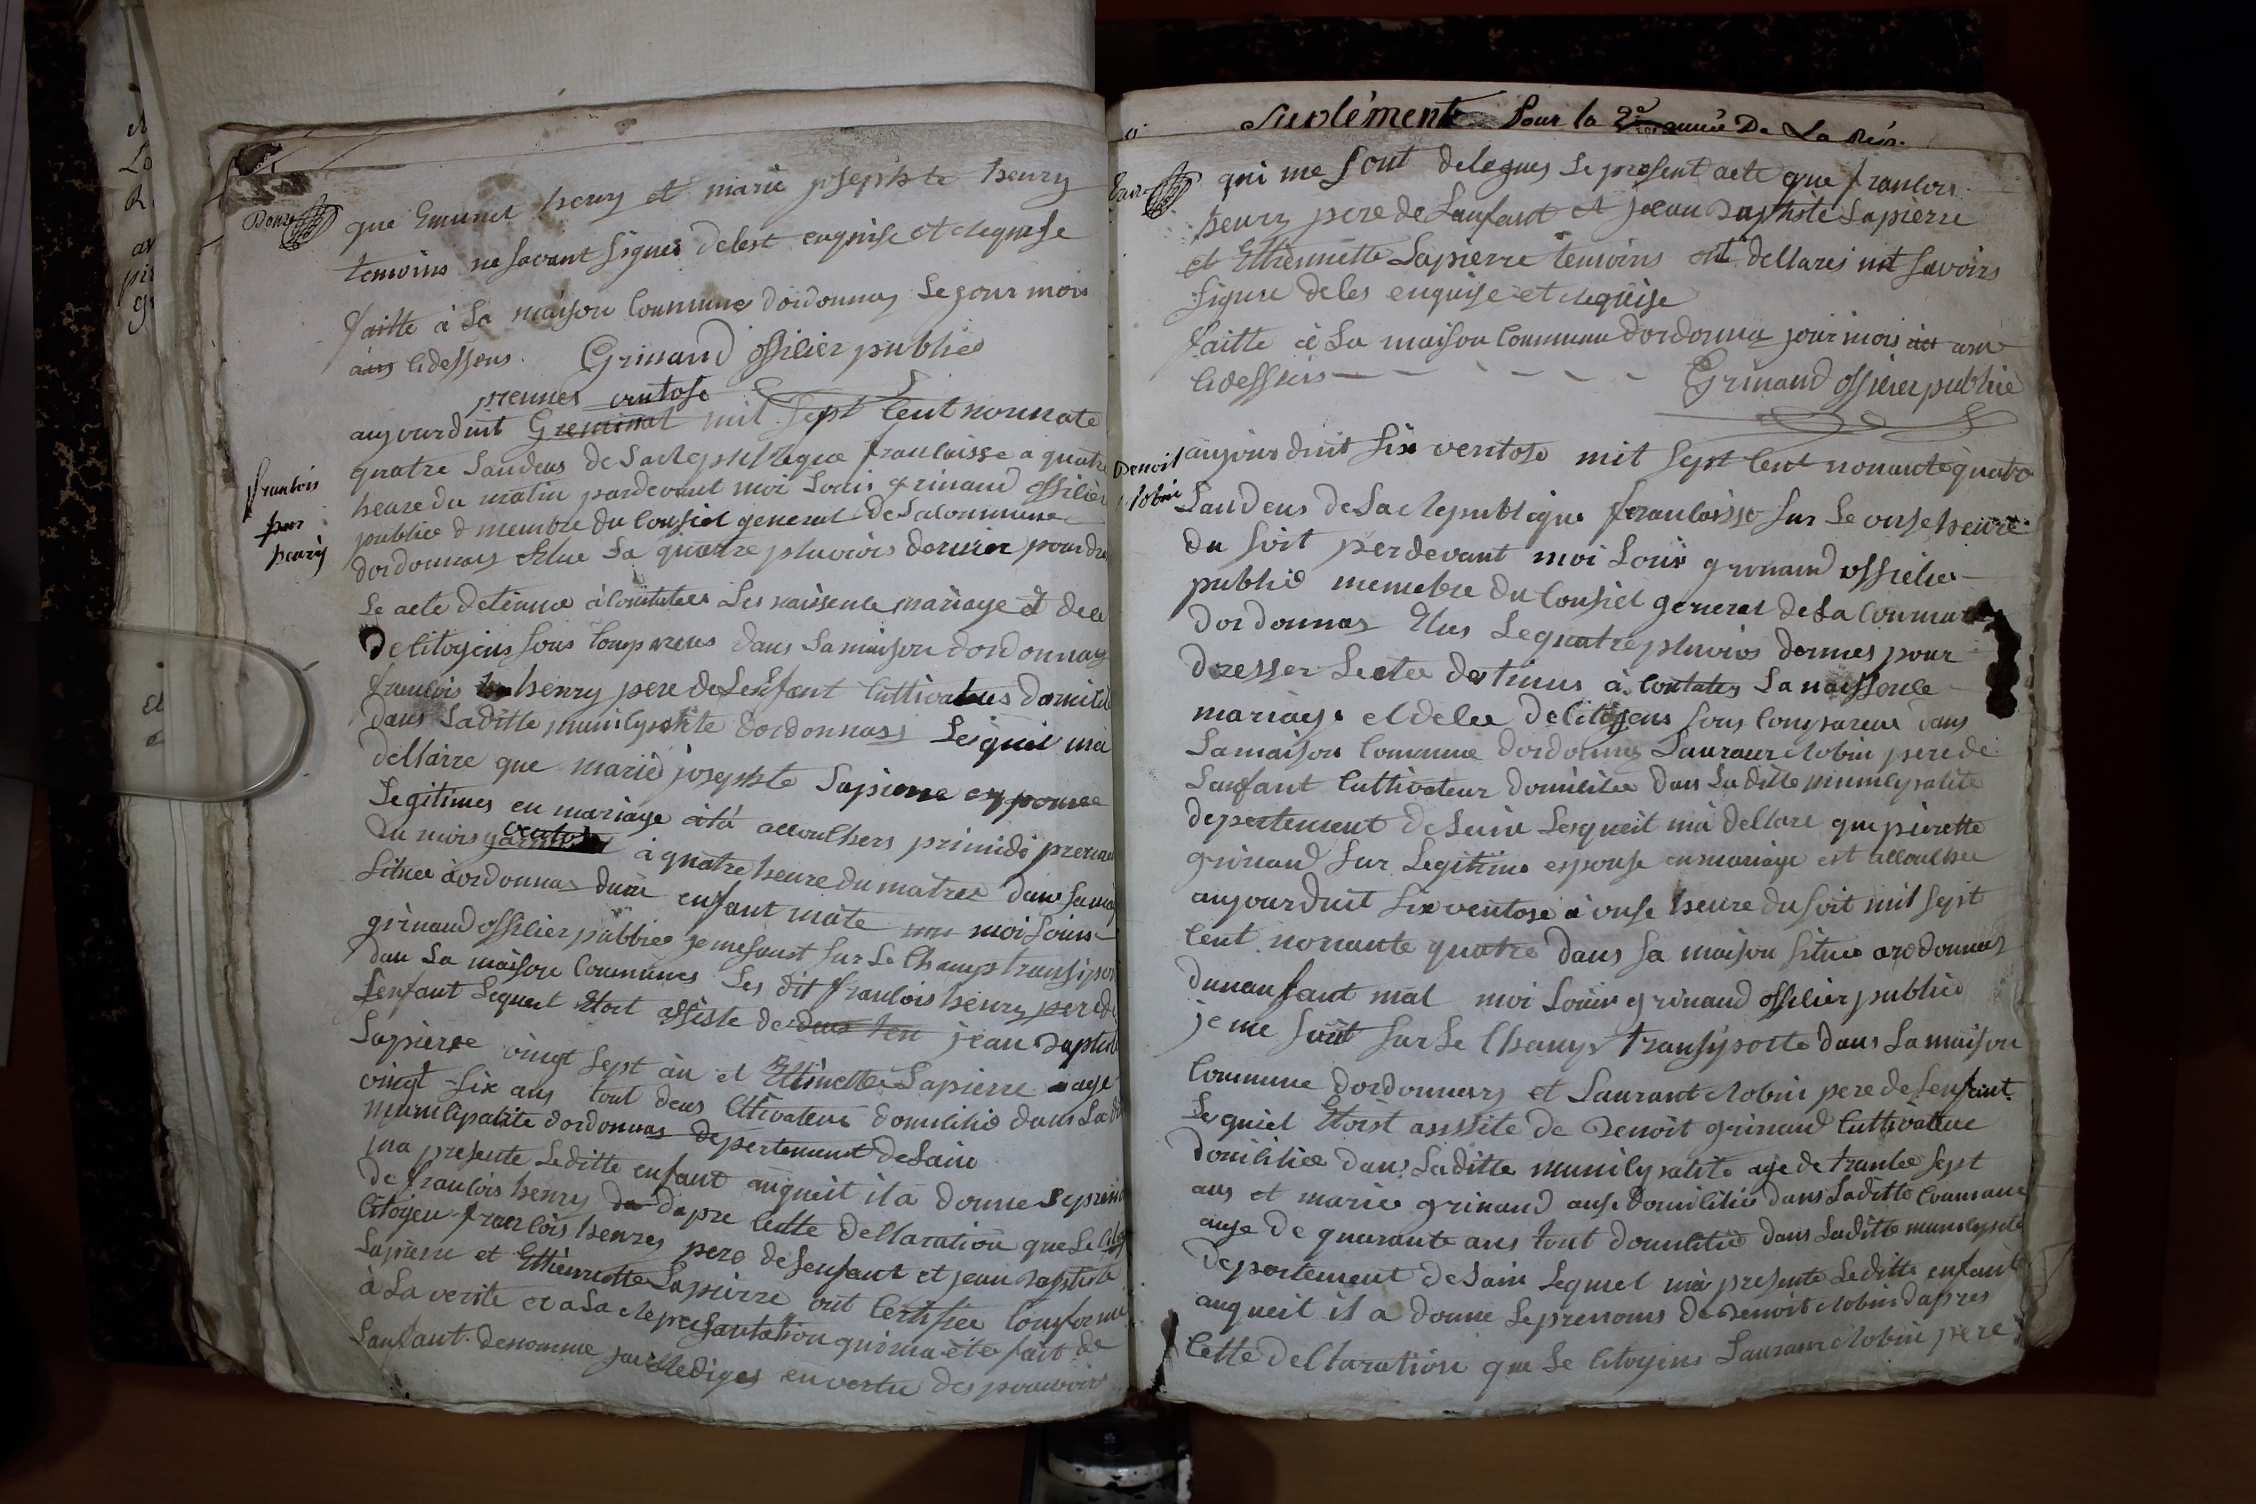 que Emunet henry et marie josephte henry
temoins ne savant signer delest enquise et requise
faitte à La maison Commune dordonnas Le jour mois
ans Cidessous. Grinand offilier publice
premier ventose
aujourduit Greminal mil sept Cent nonnate
quatre Landeus de La Republique franloisse a quatre
heure du matin pardevant moi Louis grinand offilier
publice & membre du Consiel general de La Commune
dordonnas Elue La quatre pluviois dernier pour dre
Le acte detinue à Contater Les naissence mariage et dele
De Citoyens sons Comparus dans La maison dordonnas
franlois henry pere de Lenfant Cuttivateur domicil
dans Laditte munilypalité dordonnas Lesquiel ma
dellarre que marie josephte Lapierre epouse
Legitimes en mariage àtà accoulhers primidi premier
du mois ventose à quatre heure du matin dans sa mai
situee àordonnas dun enfant mâle moi Louis
grinand offilier publice je me suit sur Le Champ transpor
dans La maison Communes Les dit franlois henry pere de
Lenfant Lequel Etoit assiste de jean Baptiste
Lapierre vingt sept an et Ettinette Lapierre age
vingt six ans tout deus Cuttivateur domicilié dans La dit
munilipalite dordonnas depertement de Lain
ma presente Leditte enfant auqueit il a donne Le prenom
de franlois henry dapre Cette dellaration que Le Citoy
Citoyen franlois henry pere de Lenfant et jean Baptiste
Lapierre et Ethiennette Lapierre ont Certifiee Conforme
à La verite et a La Representation qui ma ete fait de
Lanfant denomme jai Rediges en vertu des pouvoirs
franlois
pere
henry
Suplément Pour la 2e année De La Rép.
qui me sont delegues Le present acte que franlois
henry pere de Lanfant et jean Baptiste Lapierre
et Ethiennette Lapierre temoins ont dellares nit savoirs
signer deles enquise et requise
faitte à La maison Commune dordonna jour mois ans
Cidessus Grinand offilier publice
Benoit
Robin
aujourduit six ventose mil sept Cent nonante quatre
Landeus de La Republique franloisse sur Le onse heure
du soit perdevant moi Louis grinand offilier
publie memebre du Consiel general de La Commune
dordonnas Elus Le quatre pluvios dernies pour
dresser Lecte detinus à Contater La naissence
mariage et dele de Citoyens sons Comparus dans
La maison Commune dordonnas Laurant Robin pere de
Lanfant Cuttivateur domicilie dans La ditte munilypalite
depertement de Lain Lesqueit mà dellare que pierette
grinand sur Legitime espouse en mariage est accoulhee
aujourduit six ventose à onse heure du soit mil sept
Cent nonante quatre dans sa maison situee aordonnas
dunanfant mal moi Louis grinand offilier publice
je me suit sur Le Champ transporte dans La maison
Commune dordonnas et Laurant Robin pere de Lenfant
Lequiel Etoist assiste de Benoit grinand Cuttivateur
domilihee dans Laditte munilypalite age de trantee sept
ans et marie grinand ausi domilihée dans Laditte Commune
auge de quarante ans tout domilihé dans Laditte munilypalite
depertement de Lain Lequel mà presente Leditte enfant
auqueit il a donne Le prenoms de Benoit Robin dapres
Cette dellaration que Le Citoyens Laurant Robin pere